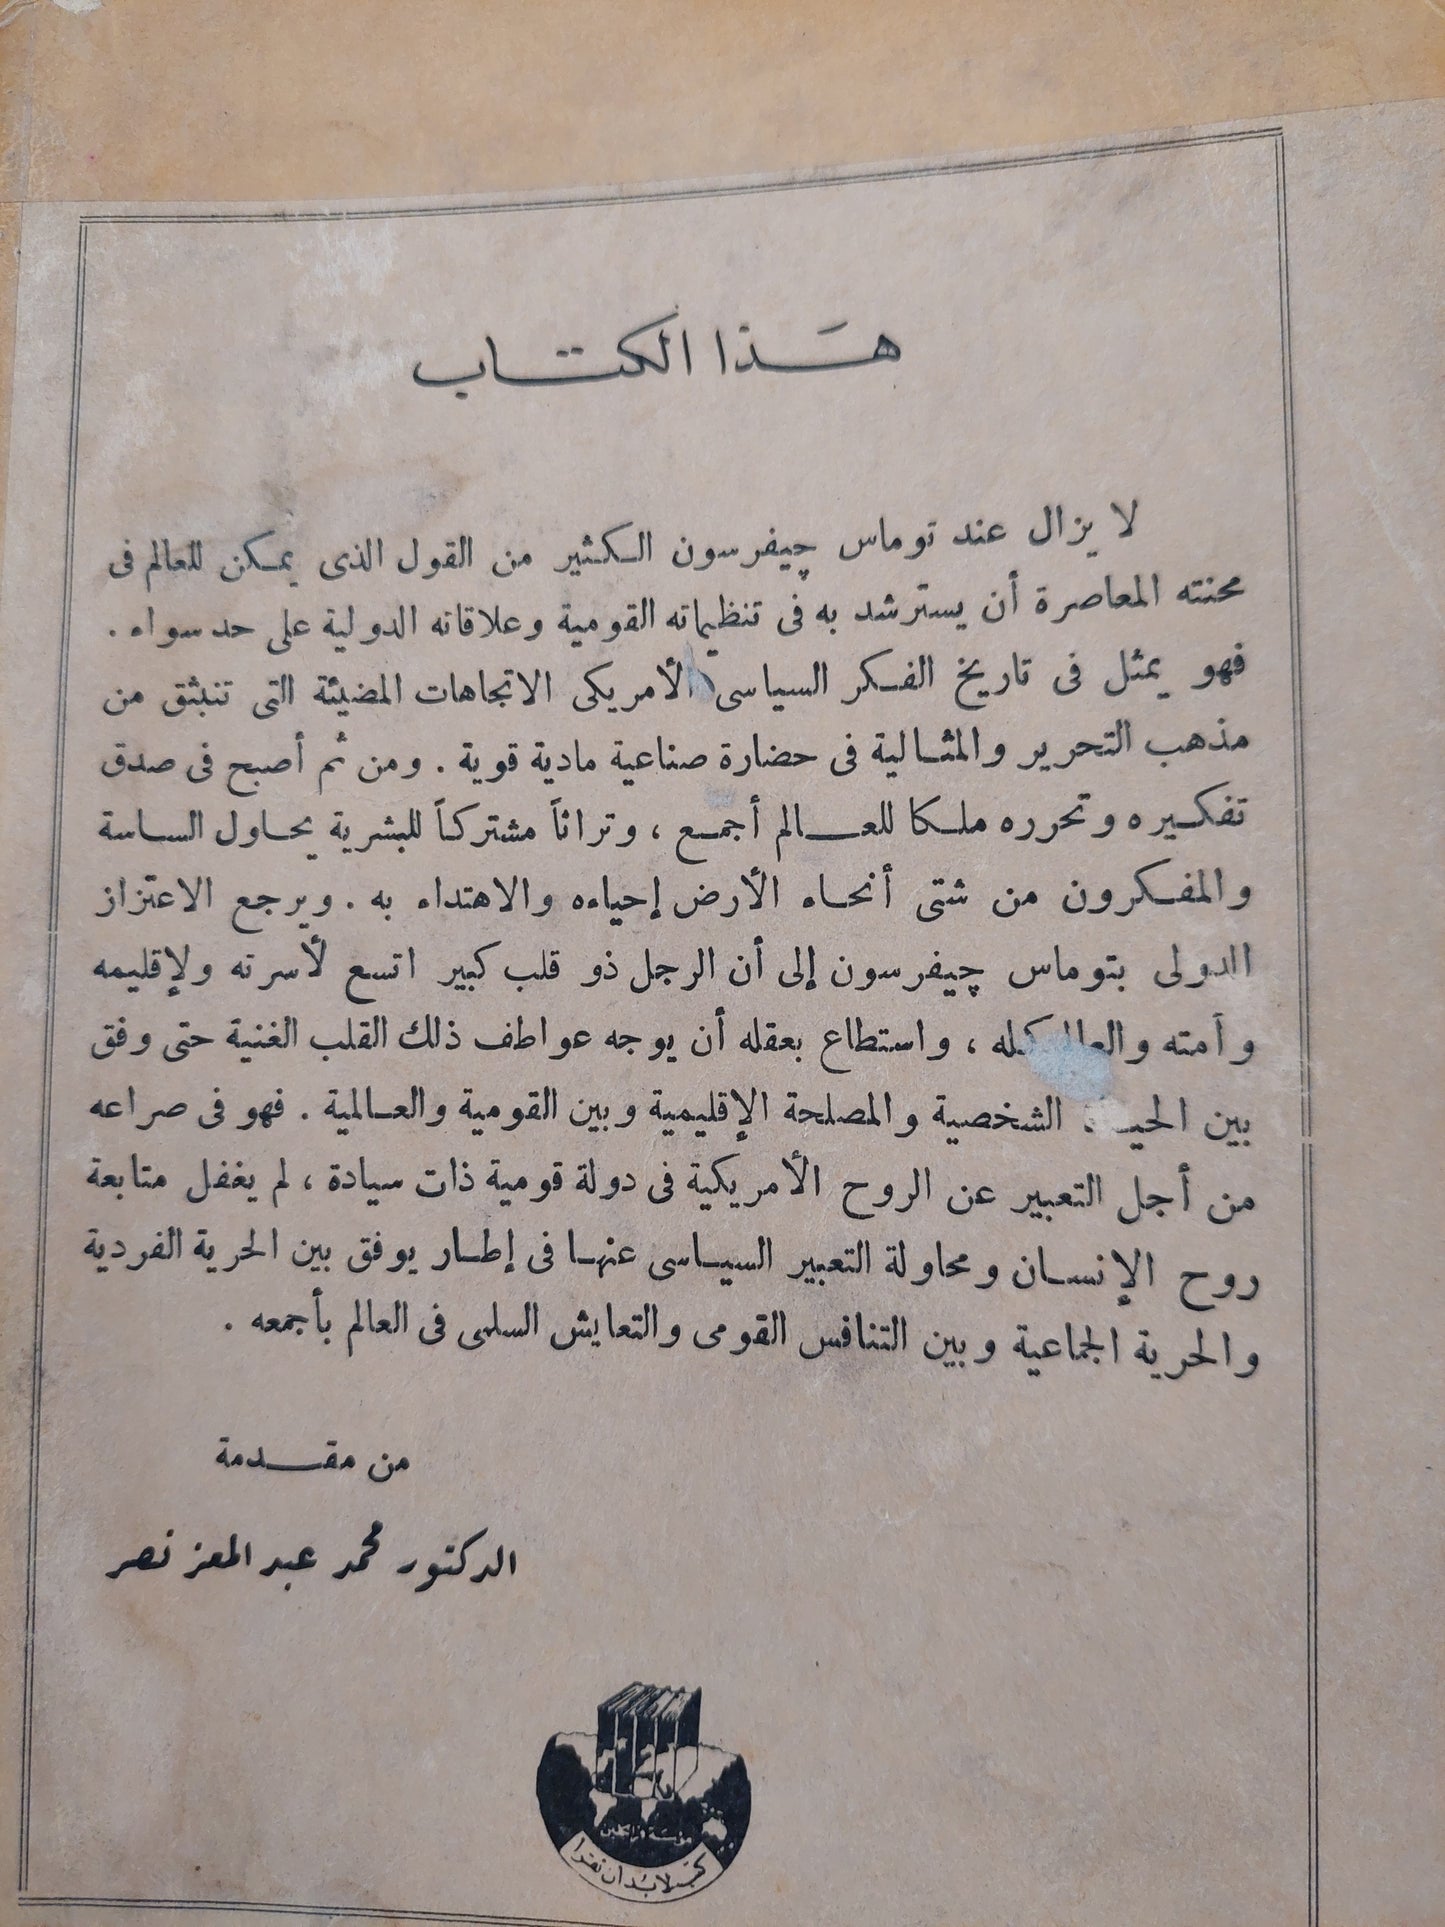 هَذا الكتاب
لا يزال عند توماس چيفرسون الكثير من القول الذى يمكن للعالم فى
محنته المعاصرة أن يسترشد به فى تنظيماته القومية وعلاقاته الدولية على حد سواء .
فهو يمثل فى تاريخ الفكر السياسى الأمريكى الاتجاهات المضيئة التى تنبثق من
مذهب التحرير والمثالية فى حضارة صناعية مادية قوية . ومن ثم أصبح فى صدق
تفكيره وتحرره ملكا للعالم أجمع ، وتراثاً مشتركاً للبشرية يحاول الساسة
والمفكرون من شتى أنحاء الأرض إحياءه والاهتداء به . ويرجع الاعتزاز
الدولى بتوماس چيفرسون إلى أن الرجل ذو قلب كبير اتسع لأسرته ولإقليمه
وأمته والعالم كله ، واستطاع بعقله أن يوجه عواطف ذلك القلب الغنية حتى وفق
بين الحياة الشخصية والمصلحة الإقليمية وبين القومية والعالمية . فهو فى صراعه
من أجل التعبير عن الروح الأمريكية فى دولة قومية ذات سيادة ، لم يغفل متابعة
روح الإنسان ومحاولة التعبير السياسى عنها فى إطار يوفق بين الحرية الفردية
والحرية الجماعية وبين التنافس القومى والتعايش السلمى فى العالم بأجمعه .
من مقدمة
الدكتور محمد عبد المعز نصر
مؤسسة فرانكلين
كتب لابد أن تقرأ